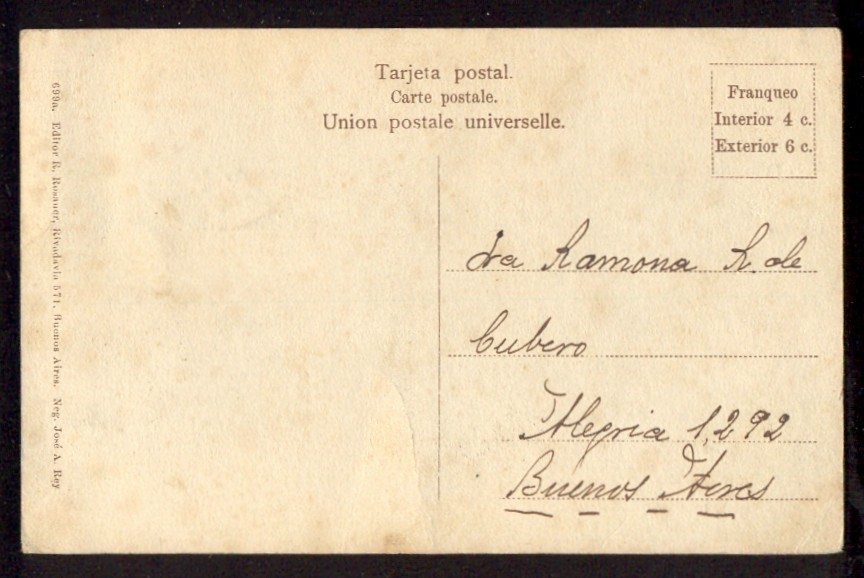 Tarjeta postal.
Carte postale.
Union postale universelle.
Franqueo
Interior 4 c.
Exterior 6 c.
Sra Ramona R. de
Cubero
Alegria 1292
Buenos Aires
699a. Editor R. Rosauer, Rivadavia 571. Buenos Aires. Neg. José A. Rey